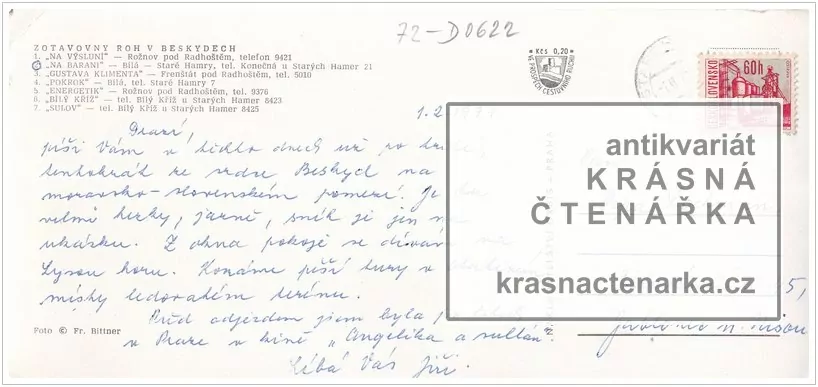 72-D0622
ZOTAVOVNY ROH V BESKYDECH
1. „NA VÝSLUNÍ" — Rožnov pod Radhoštěm, telefon 9421
2. „NA BARANI" — Bílá — Staré Hamry, tel. Konečná u Starých Hamer 21
3. „GUSTAVA KLIMENTA" — Frenštát pod Radhoštěm, tel. 5010
4. „POKROK" — Bílá, Staré Hamry 7
5. „ENERGETIK" — Rožnov pod Radhoštěm, tel. 9376
6. „BÍLÝ KŘÍŽ" — Bílý Kříž u Starých Hamer 8423
7. „SULOV" — tel. Bílý Kříž u Starých Hamer 8425
Kčs 0,20
VE PROSPĚCH CESTOVNÍHO RUCHU
60h
1. 2.
Drazí,
píši Vám v těchto dnech už po
tentokrát ze srdce Beskyd na
moravsko-slovenském pomezí. Je
velmi hezky, jarně, sníh je jen
ukázku. Z okna pokoje se
Lysou horu. Konáme pěší túry v
místy ledovatém terénu.
Před odjezdem jsem byla
v Praze v kině „Angelika a sultán".
Líbá Vás Jiří.
Foto © Fr. Bittner
antikvariát
KRÁSNÁ
ČTENÁŘKA
krasnactenarka.cz
5,